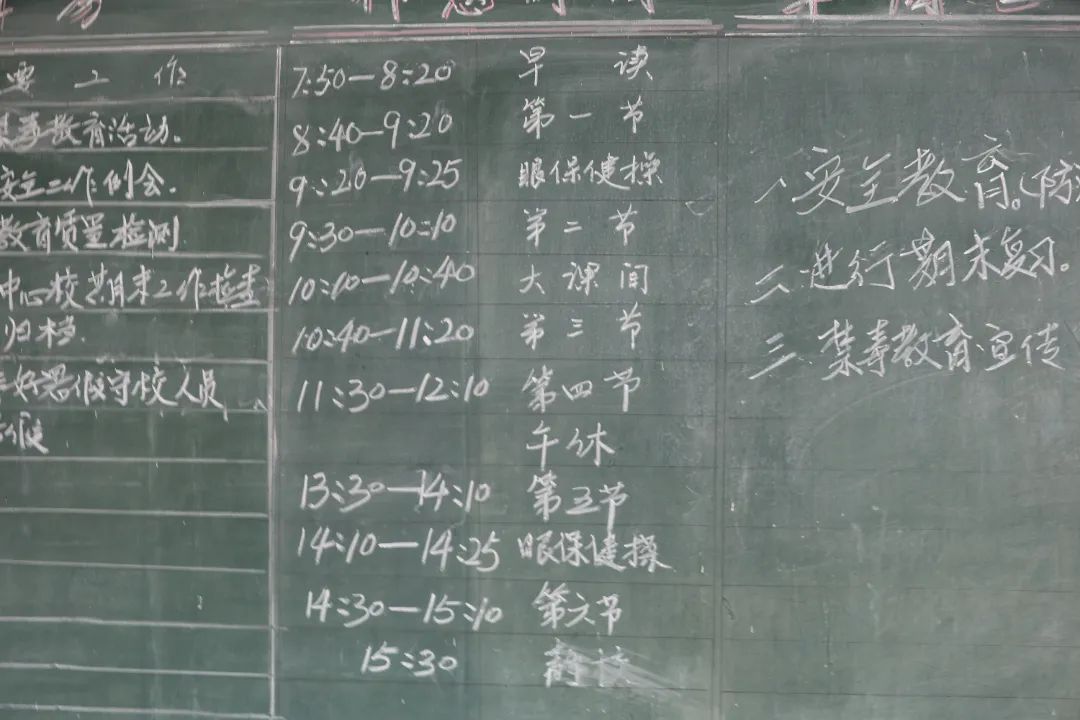 要工作
教育活动.
安全工作例会.
教育质量检测
中心校期末工作检查
归档.
好暑假守校人员
假
7:50—8:20 早读
8:40—9:20 第一节
9:20—9:25 眼保健操
9:30—10:10 第二节
10:10—10:40 大课间
10:40—11:20 第三节
11:30—12:10 第四节
午休
13:30—14:10 第五节
14:10—14:25 眼保健操
14:30—15:10 第六节
15:30
一、安全教育。(防
二、进行期末复习。
三、禁毒教育宣传